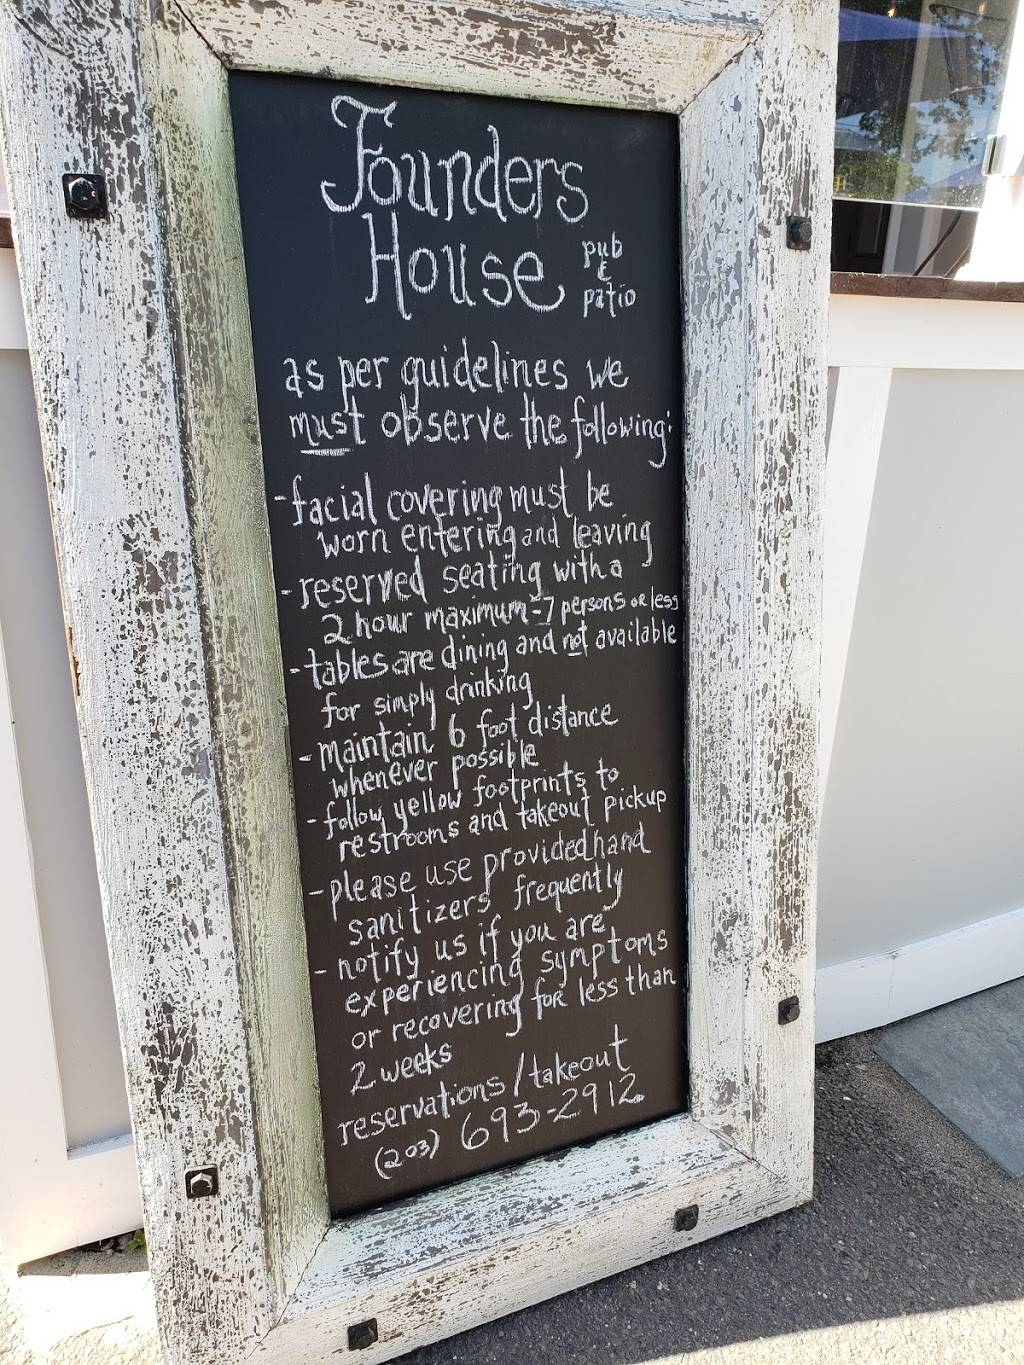 Founders
House pub
&
patio
as per guidelines we
must observe the following:
- facial covering must be
worn entering and leaving
- reserved seating with a
2 hour maximum - 7 persons or less
- tables are dining and not available
for simply drinking
- maintain 6 foot distance
whenever possible
- follow yellow footprints to
restrooms and takeout pickup
- please use provided hand
sanitizers frequently
- notify us if you are
experiencing symptoms
or recovering for less than
2 weeks
reservations/takeout
(203) 693-2912